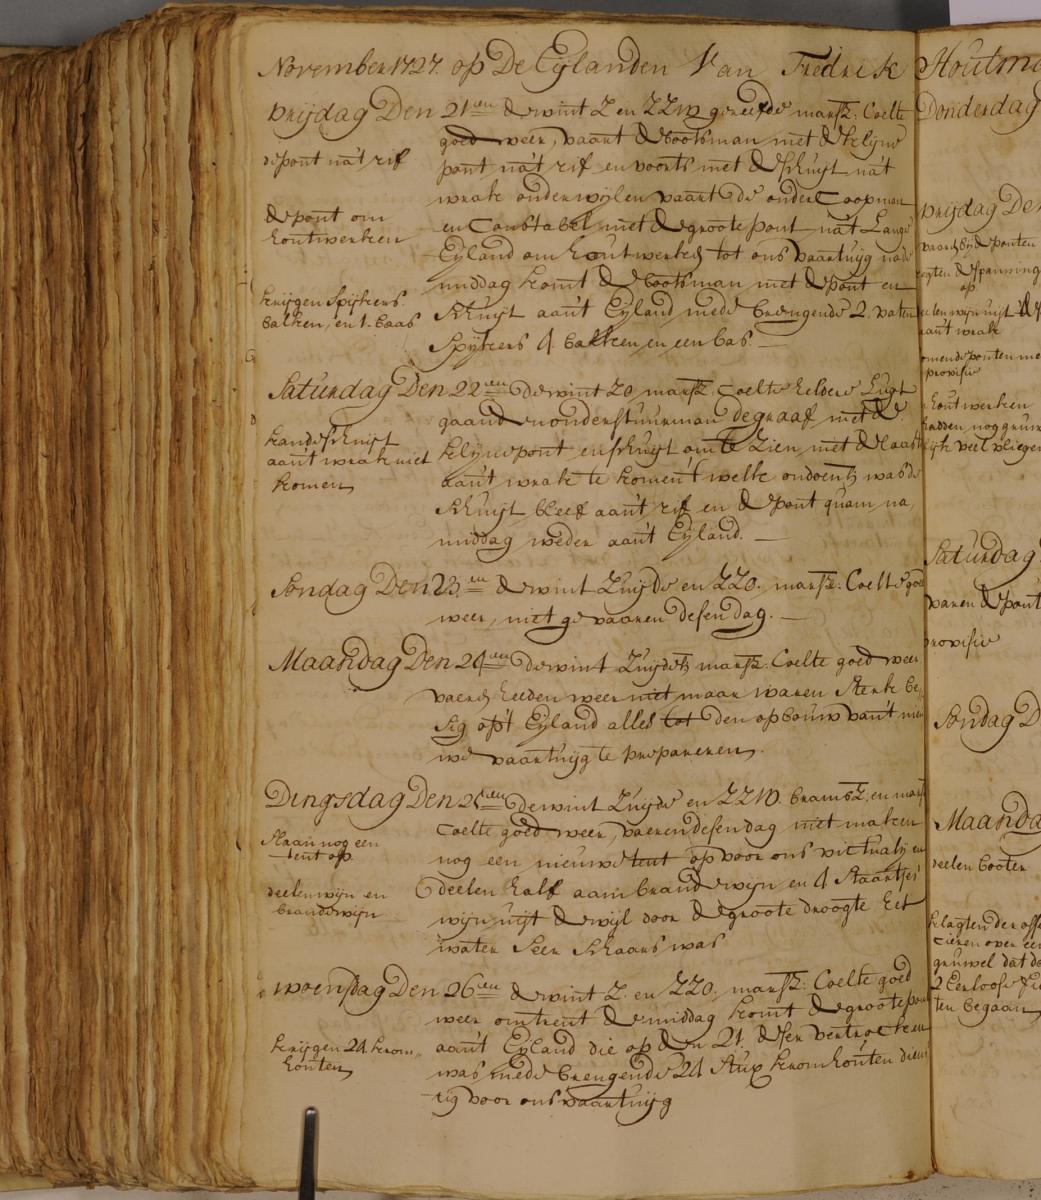 November 1727. op De Eylanden Van Fredrik
Vrijdag Den 21en de wint Z en ZZW gereefde marsz: Coelte
goed weer, vaart de bootsman met de klijne
pont na't rif en voorts met de schuijt na't
wrak onderwijlen vaart de onder Coopman
en Constabel met de groote pont na't Lange
Eyland om hout werken tot ons vaartuijg nade
middag komt de bootsman met de pont en
schuijt aan't Eyland mede brengende 2. vaten
Spijkers 4 balken en een bas.
de pont na't rif
de pont om
houtwerken
krijgen Spijkers
balken, en 1. baas
Saturdag Den 22en de wint ZO marsz: Coelte heldere Lugt
gaande onderstuurman de graaf met de
klijne pont en schuijt om te zien met de laaste
aan't wrak te komen 't welk ondoenl: was de
schuijt bleef aan't rif en de pont quam na,
middag weder aan't Eyland.
kan de schuijt
aan't wrak niet
komen
Sondag Den 23.en de wint Zuijde en ZZO. marsz: Coelte goed
weer, niet gevaaren desen dag.
Maandag Den 24en de wint Zuijdel: marsz: Coelte goed weer
vaeren heeden weer niet maar waren sterk be,
sig op't Eyland alles tot den opbouw van't nieu
we vaartuijg te prepareren.
Dingsdag Den 25en de wint Zuijde en ZZW. bramsz: en marsz
Coelte goed weer, vaeren desen dag niet maken
nog een nieuwe tent op voor ons victualij en
deelen half aam brandewijn en 4 staartjes
wijn uijt dewijl door de groote droogte het
water seer schaars was
Slaan nog een
tent op
deelen wijn en
brandewijn
Woensdag Den 26en de wint Z. en ZZO. marsz: Coelte goed
weer omtrent de middag komt de groote pont
aan't Eyland die op den 21. deser vertrocken
was mede brengende 24 stux kromhouten diens
tig voor ons vaartuijg
krijgen 24 krom,
houten
Houtma
Donderdag
vrijdag De
vaaren bij de ponten
de spanning
op
deelen wijn uijt
aan't wrak
komende ponten me
provisie
hout werken
hadden nog gruw
lijk veel vliege
Saturdag
varen de pont
provisie
Sondag D
Maanda
deelen booter
klagten der offi
cieren over een
gruwel dat de
2 Eerloose
ten begaan